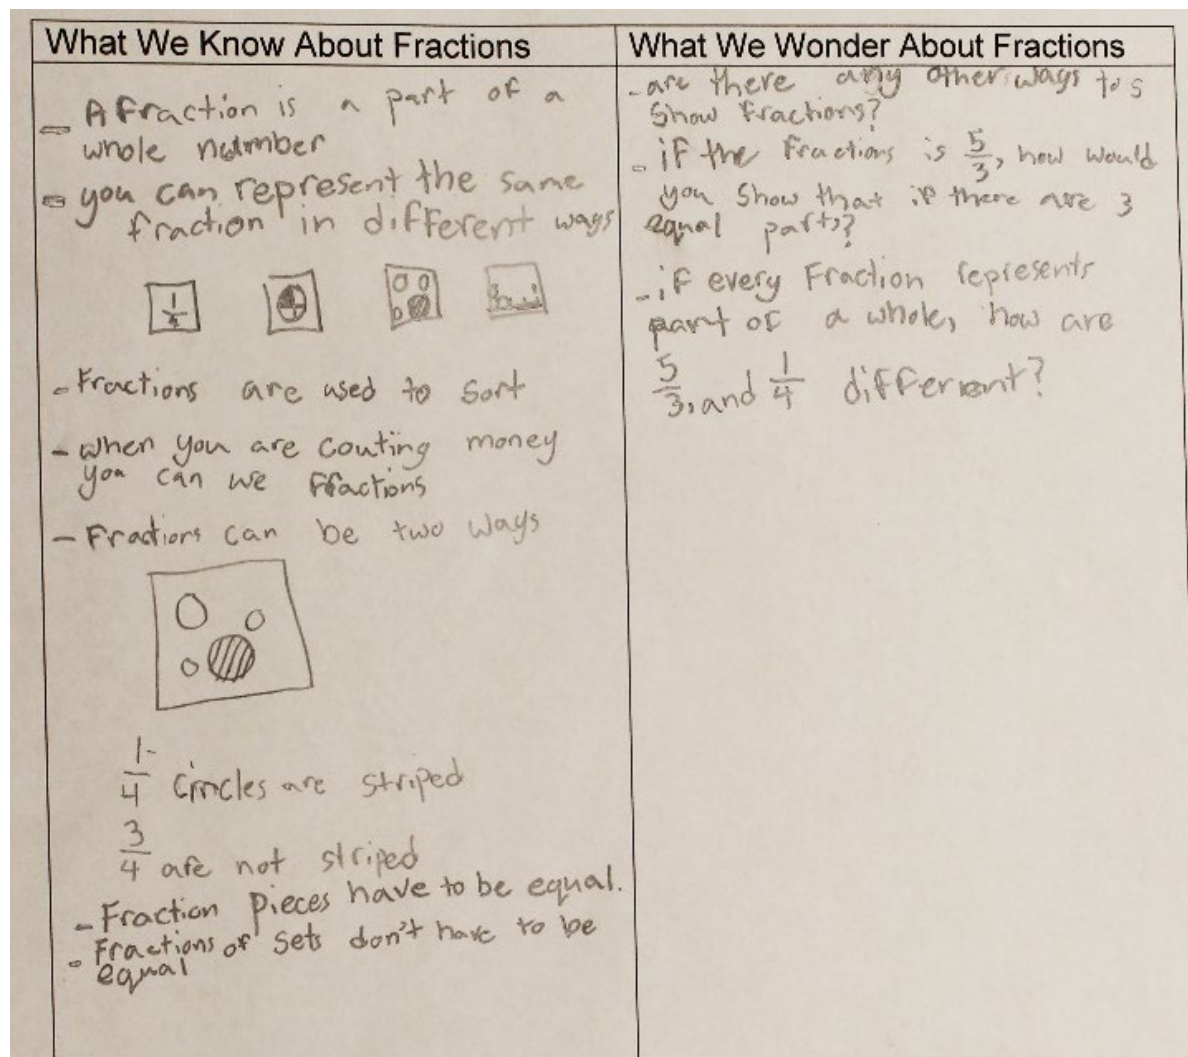 What We Know About Fractions
- A fraction is a part of a
whole number
- you can represent the same
fraction in different ways
1/4
- Fractions are used to sort
- when you are couting money
you can use fractions
- Fractions can be two ways
1/4 circles are striped
3/4 are not striped
- Fraction pieces have to be equal.
- Fractions of sets don't have to be
equal
What We Wonder About Fractions
- are there any other ways to
show fractions?
- if the fractions is 5/3, how would
you show that if there are 3
equal parts?
- if every Fraction represents
part of a whole, how are
5/3, and 1/4 different?